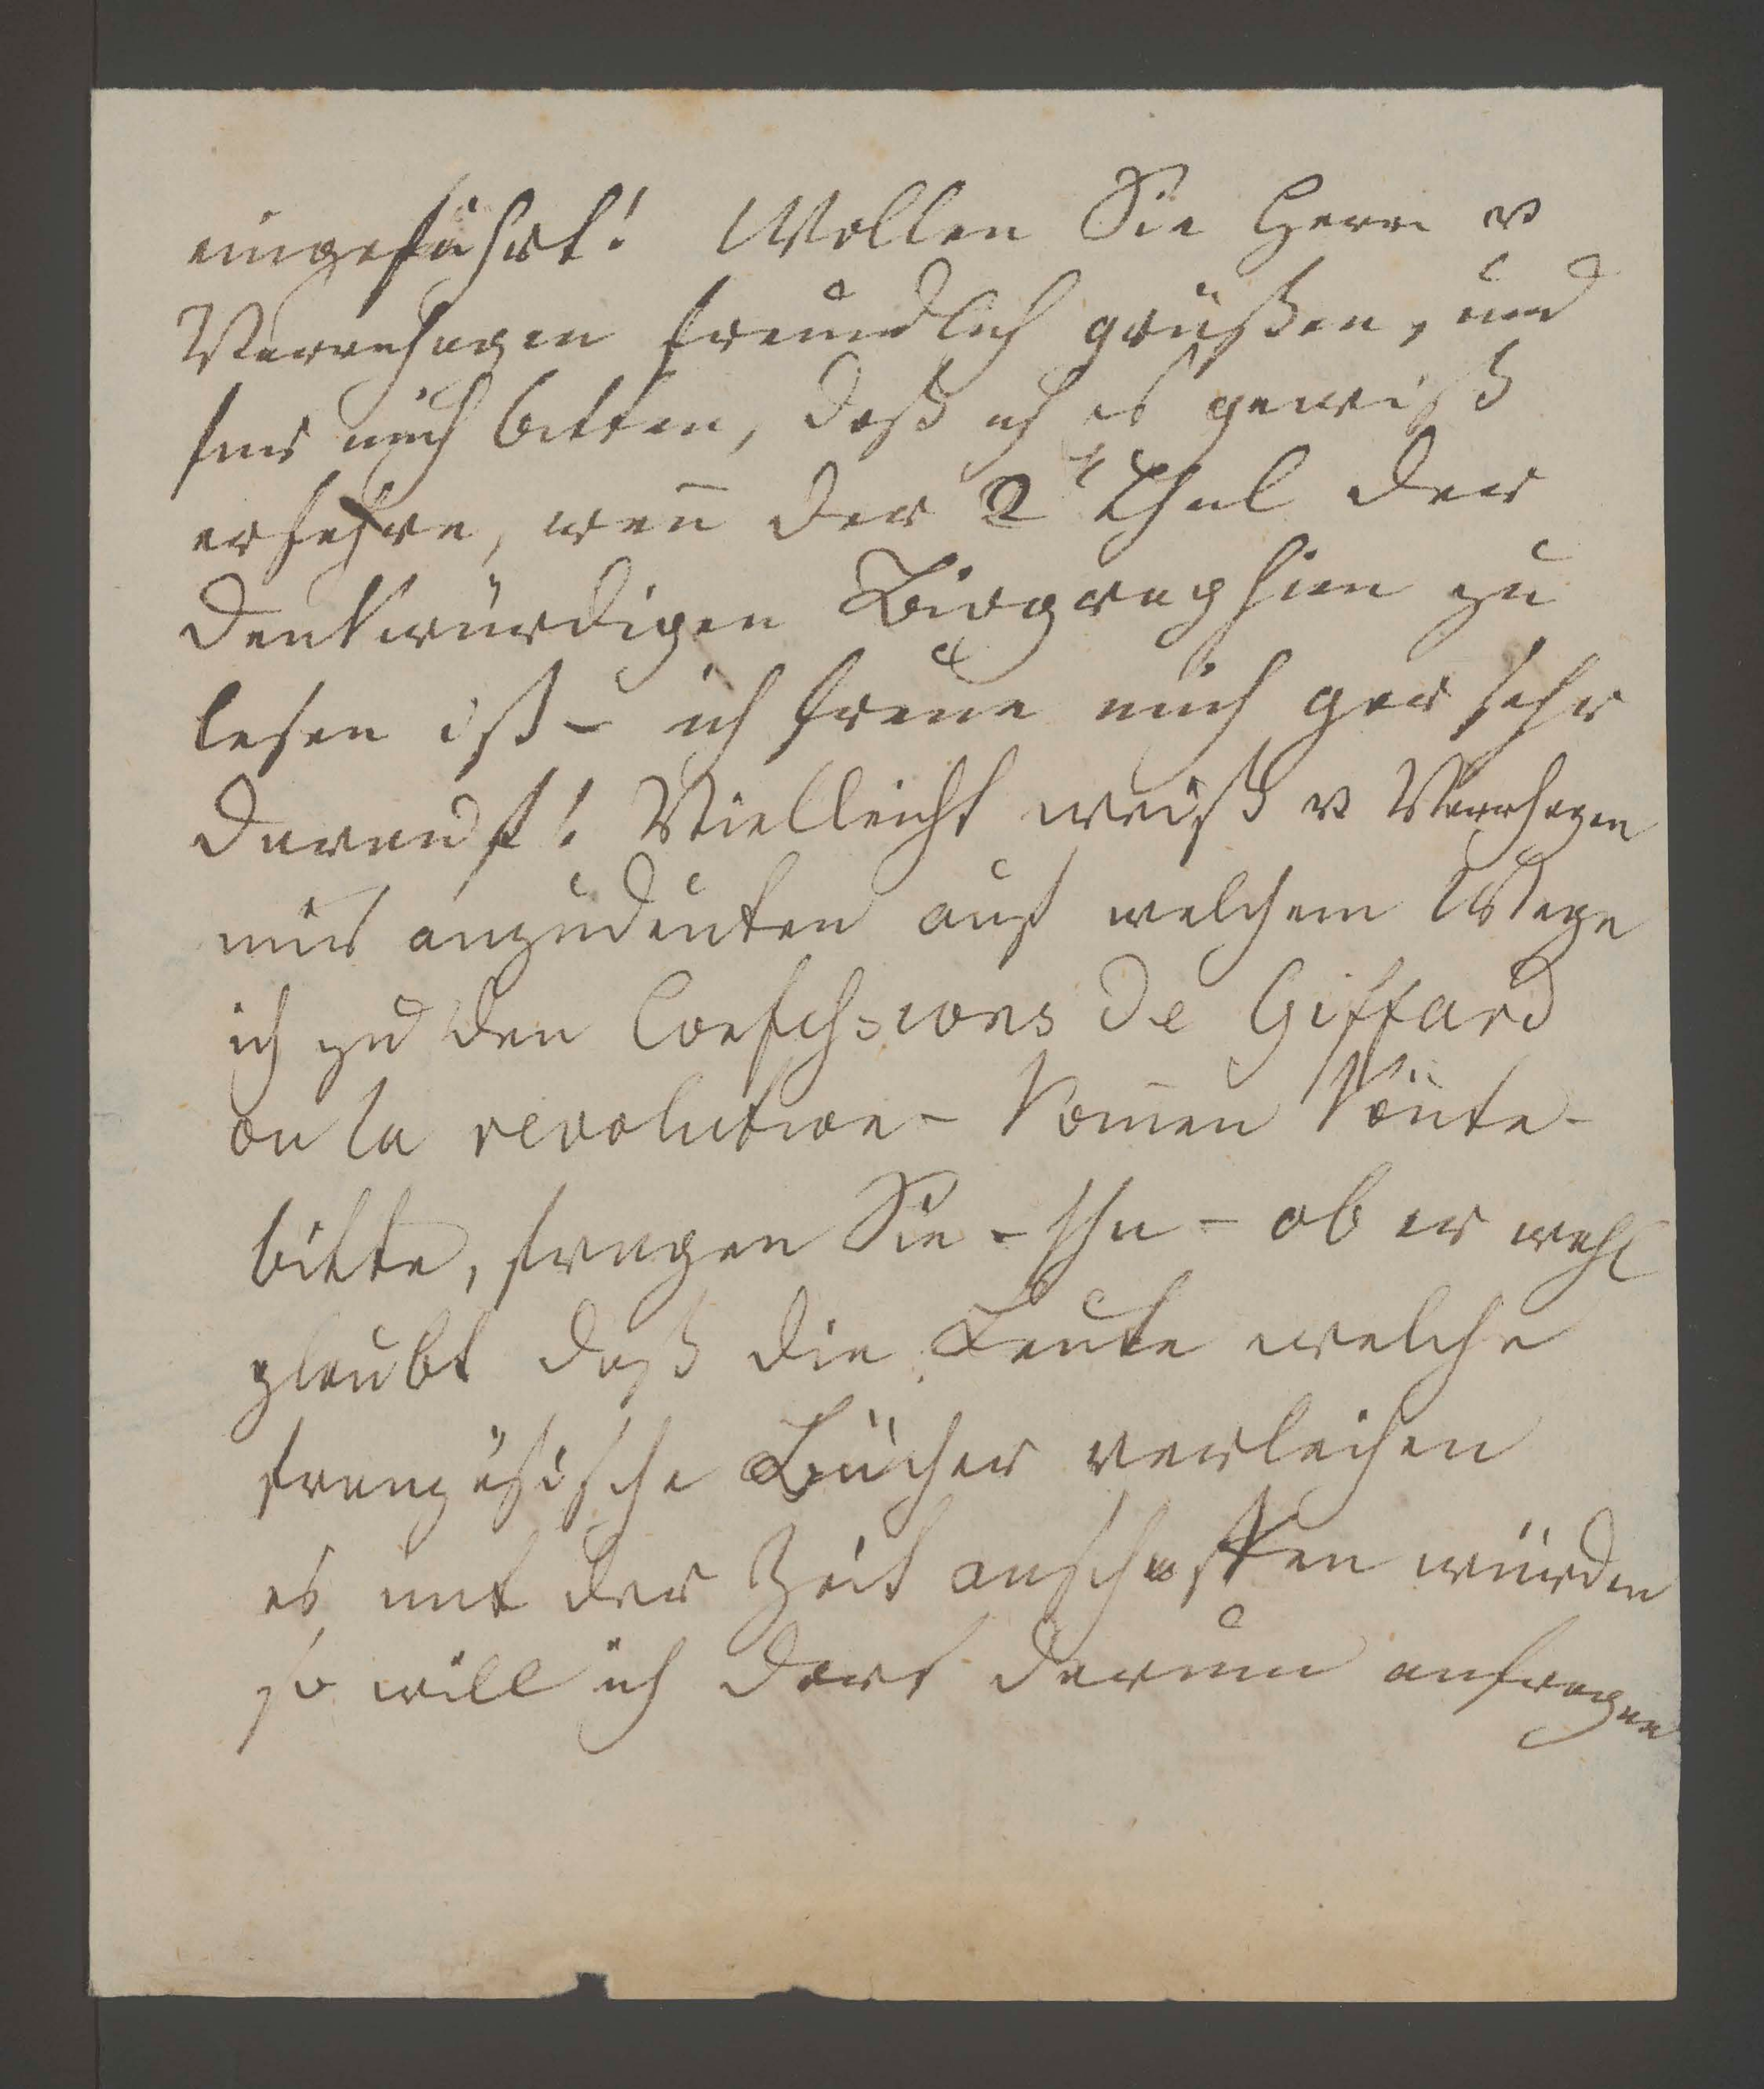 eingeführt! Wollen Sie Herrn v
Varnhagen freundlich grüßen, und
für mich bitten, daß ich es gewiß
erfahre, wen̅ der 2t Theil der
denkwürdigen Biographien zu
lesen ist – ich freue mich gar sehr
darauf! Vielleicht weiß v Varnhagen
mir anzudeuten auf welchem Wege
ich zu den Confessions de Giffard
ou la revolution – kom̅en kön̅te –
bitte, fragen Sie – ihn – ob er wohl
glaubt daß die Leute welche
französische Bücher verleihen
es mit der Zeit anschaffen würden
so will ich dort darum anfragen